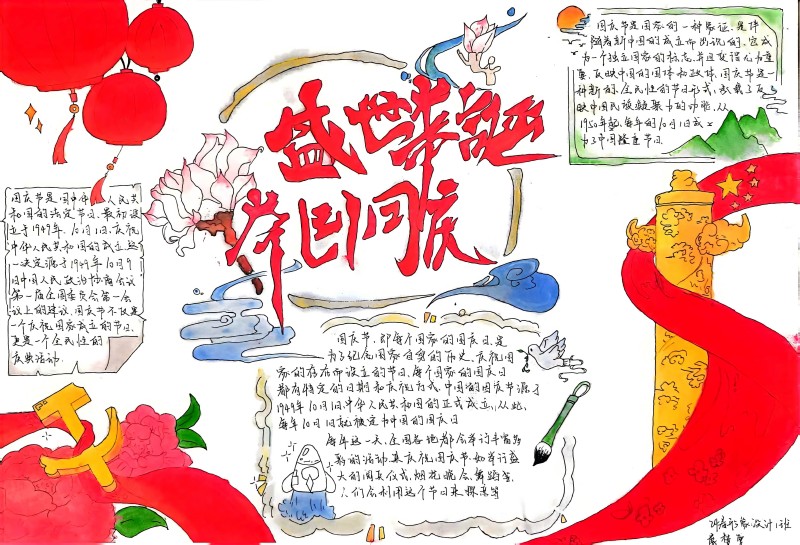 盛世华诞
举国同庆
国庆节是国家的一种象征,是伴
随着新中国的成立而出现的,它成
为一个独立国家的标志,并且变得尤为重
要,反映中国的国体和政体,国庆节是一
种新的、全民性的节日形式,承载了反
映中国民族凝聚力的功能,从
1950年起,每年的10月1日成
为了中国隆重节日.
国庆节是由中华人民共
和国的法定节日.最初设
立于1949年,10月1日,庆祝
中华人民共和国的成立.这
一决定源于1949年10月9
日中国人民政治协商会议
第一届全国委员会第一会
议上的建议.国庆节不仅是
一个庆祝国家成立的节日,
更是一个全民性的
庆典活动.
国庆节,即每个国家的国庆日,是
为了纪念国家自身的历史、庆祝国
家的存在而设立的节日.每个国家的国庆日
都有特定的日期和庆祝方式.中国的国庆节源于
1949年10月1日中华人民共和国的正式成立,从此,
每年10月1日就被定为中国的国庆日
每年这一天,全国各地都会举行丰富多
彩的活动来庆祝国庆节.如举行盛
大的阅兵仪式,烟花晚会、舞蹈等
人们会利用这个节日来
形象设计1班